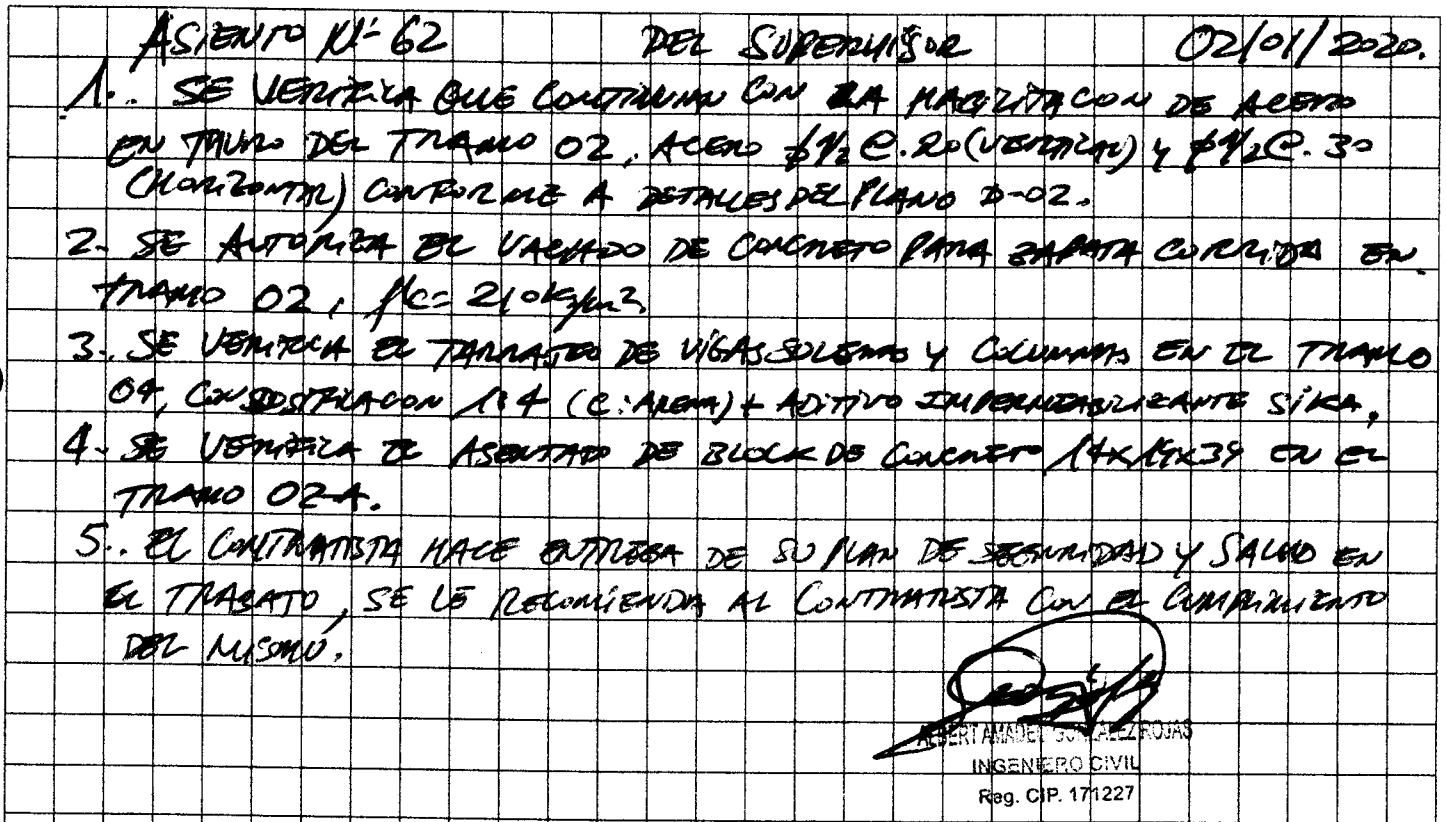 ASIENTO Nº 62 DEL SUPERVISOR 02/01/2020.
1.. SE VERIFICA QUE CONTINUAN CON LA HABILITACON DE ACERO
EN MURO DEL TRAMO 02, ACERO ϕ1/2 @.20 (VERTICAL) Y ϕ1/2 @.30
(HORIZONTAL) CONFORME A DETALLES DEL PLANO D-02.
2- SE AUTORIZA EL VACIADO DE CONCRETO PARA ZAPATA CORRIDA EN
TRAMO 02, f'c= 210kg/cm2
3.. SE VERIFICA EL TARRAJEO DE VIGAS SOLERAS Y COLUMNAS EN EL TRAMO
04, CON DOSIFICACON 1:4 (C:ARENA) + ADITIVO IMPERMEABILIZANTE SIKA,
4- SE VERIFICA EL ASENTADO DE BLOCK DE CONCRETO 14x19x39 EN EL
TRAMO 02-A.
5.. EL CONTRATISTA HACE ENTREGA DE SU PLAN DE SEGURIDAD Y SALUD EN
EL TRABAJO, SE LE RECOMIENDA AL CONTRATISTA CON EL CUMPLIMIENTO
DEL MISMO.
ALBERT AMADEL GONZALEZ ROJAS
INGENIERO CIVIL
Reg. CIP. 171227